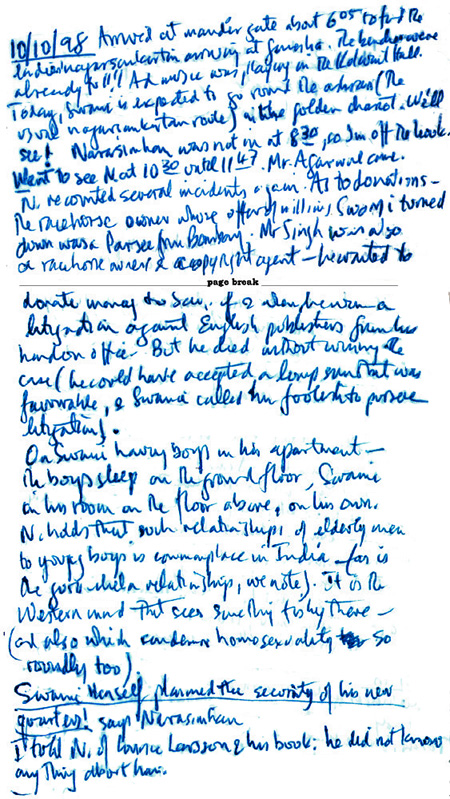 10/10/98 Arrived at mandir gate about 6 05 to find the
nagarsankirtan arriving at Ganesha. The benches were
already full!!! And music was playing in the Kalwant Hall.
Today, Swami is expected to go round the ashram (the
usual nagarsankirtan route) in the golden chariot. We'll
see! Narasimhan was not in at 8 30, so I'm off the hook.
Went to see N at 10 30 until 11 47. Mr. Agarwal came.
N. recounted several incidents again. As to donations –
the racehorse owner whose offer of millions Swami turned
down was a Parsee from Bombay. Mr Singh was also
a racehorse owner & a copyright agent – he wanted to
page break
donate money to Sai, if & when he won a
litigation against English publishers from his
London office. But he died without winning the
case (he could have accepted a lump sum that was
favourable, & Swami called him foolish to pursue
litigation).
On Swami having boys in his apartment –
the boys sleep on the ground floor, Swami
in his room on the floor above, on his own.
N. holds that such relationships of elderly men
to young boys is commonplace in India – far is
the guru-chela relationship, we note). It is the
Western mind that sees something fishy there –
(and also which condemns homosexuality so
roundly too)
Swami Himself planned the security of his new
quarters! says Narasimhan
I told N. of Larsson & his book; he did not know
anything about him.